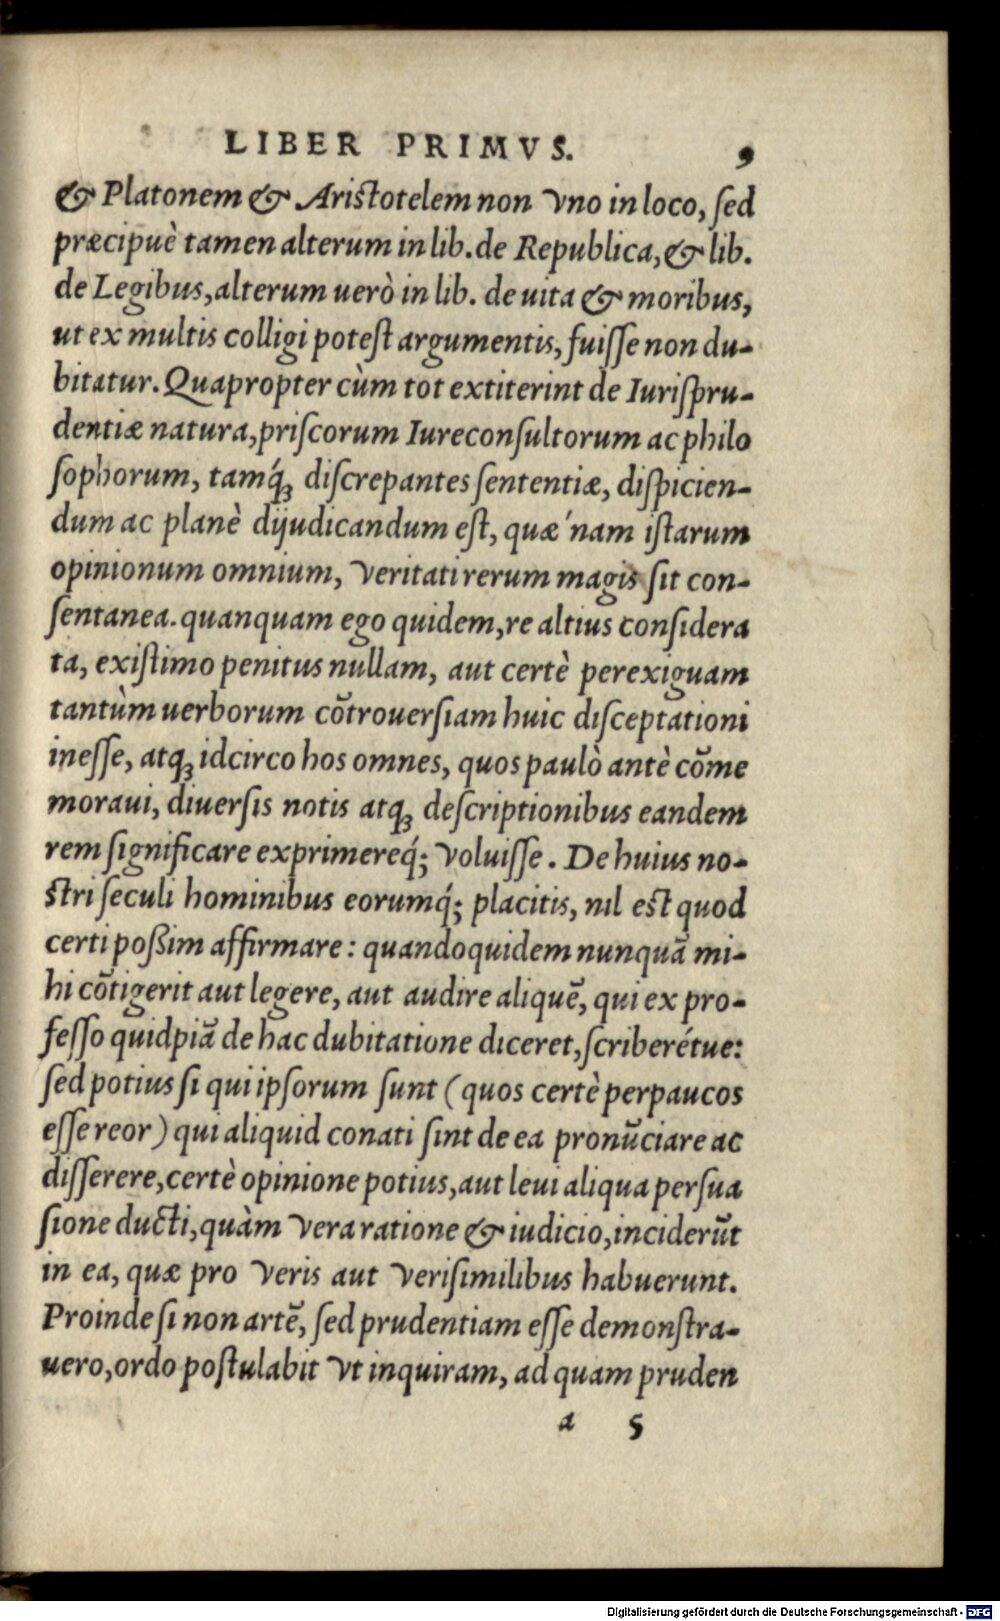 LIBER PRIMVS. 9
& Platonem & Aristotelem non vno in loco, sed
præcipuè tamen alterum in lib. de Republica, & lib.
de Legibus, alterum uerò in lib. de uita & moribus,
ut ex multis colligi potest argumentis, fuisse non du-
bitatur. Quapropter cùm tot extiterint de Iurispru-
dentiæ natura, priscorum Iureconsultorum ac philo
sophorum, tamq́; discrepantes sententiæ, dispicien-
dum ac planè dijudicandum est, quæ´nam istarum
opinionum omnium, veritati rerum magis sit con-
sentanea. quanquam ego quidem, re altius considera
ta, existimo penitus nullam, aut certè perexiguam
tantùm uerborum cõtrouersiam huic disceptationi
inesse, atq; idcirco hos omnes, quos paulò antè cõme
moraui, diuersis notis atq; descriptionibus eandem
rem significare exprimereq́; voluisse. De huius no-
stri seculi hominibus eorumq́; placitis, nil est quod
certi poßim affirmare: quandoquidem nunquã mi-
hi cõtigerit aut legere, aut audire aliquẽ, qui ex pro-
fesso quidpiã de hac dubitatione diceret, scriberétue:
sed potius si qui ipsorum sunt (quos certè perpaucos
esse reor) qui aliquid conati sint de ea pronũciare ac
disserere, certè opinione potius, aut leui aliqua persua
sione ducti, quàm vera ratione & iudicio, inciderũt
in ea, quæ pro veris aut verisimilibus habuerunt.
Proinde si non artẽ, sed prudentiam esse demonstra-
uero, ordo postulabit vt inquiram, ad quam pruden
a 5
Digitalisierung gefördert durch die Deutsche Forschungsgemeinschaft - DFG